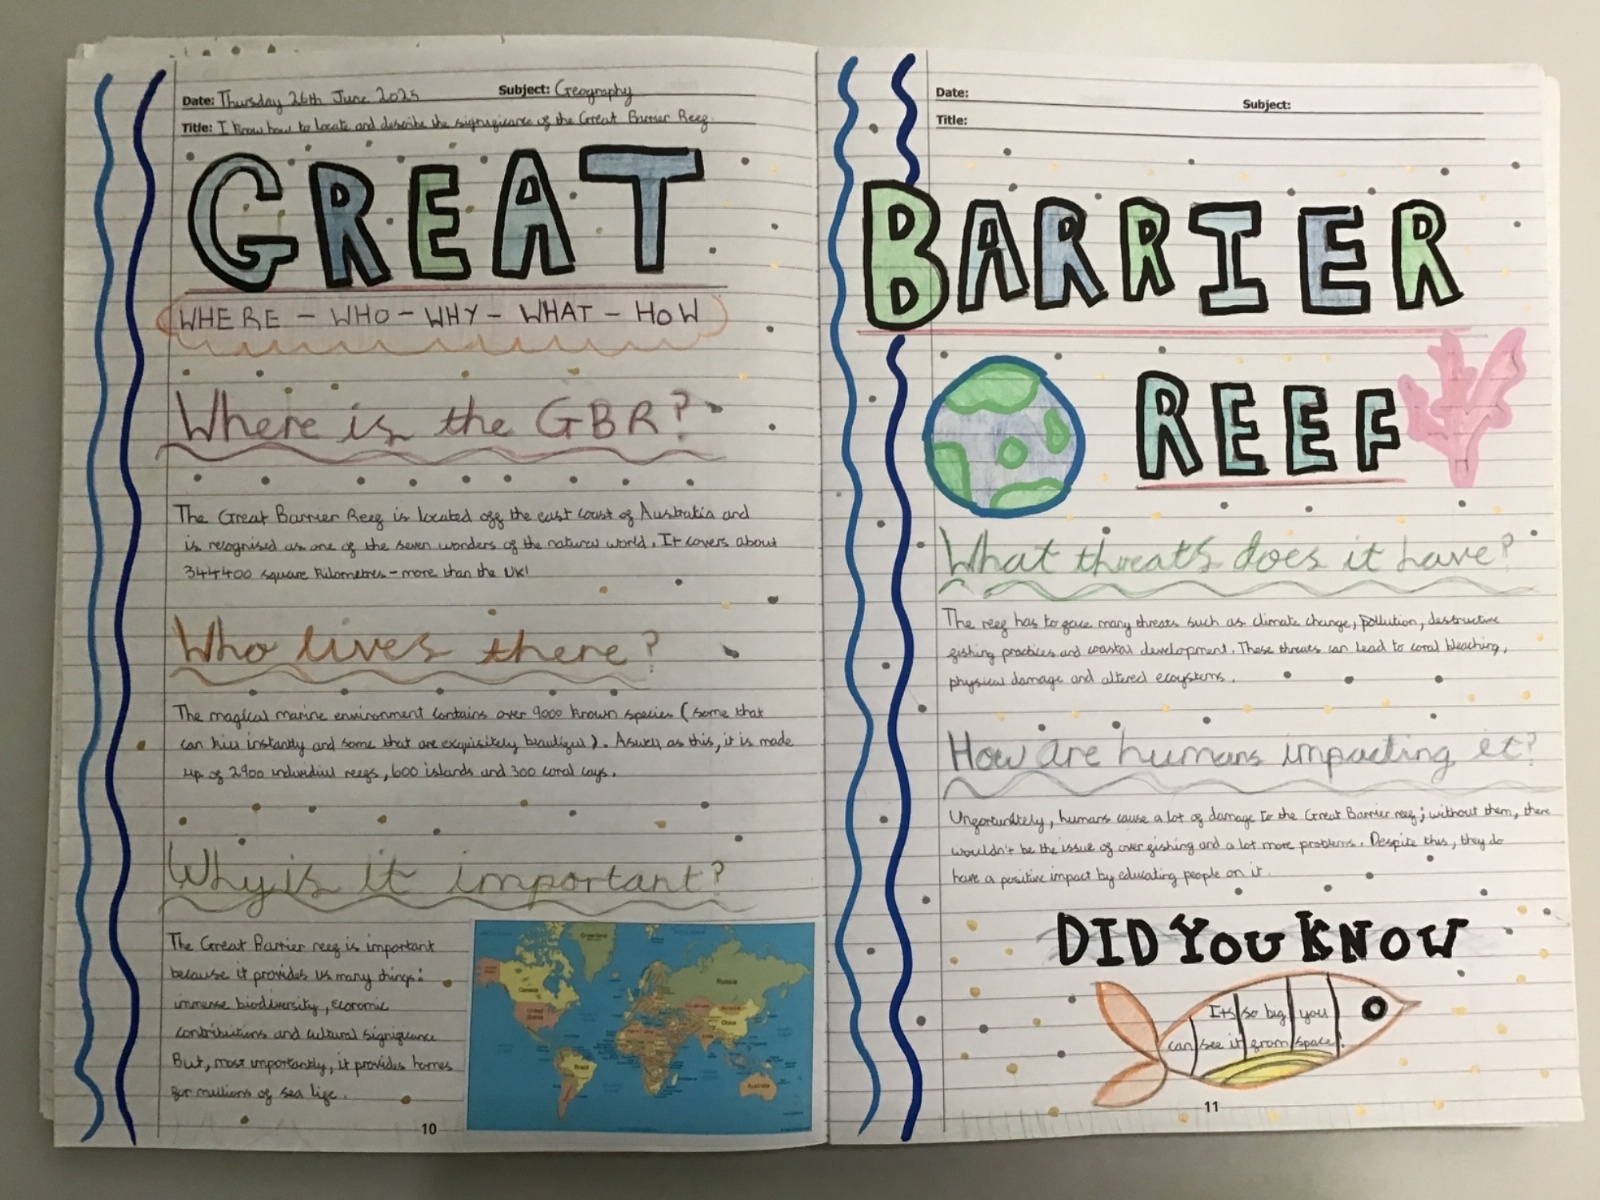 Date: Thursday 26th June 2025 Subject: Geography
Title: I know how to locate and describe the significance of the Great Barrier Reef.
GREAT
WHERE - WHO - WHY - WHAT - HOW
Where is the GBR?
The Great Barrier Reef is located off the east coast of Australia and
is recognised as one of the seven wonders of the natural world. It covers about
344400 square kilometres - more than the UK!
Who lives there?
The magical marine environment contains over 9000 known species (some that
can kill instantly and some that are exquisitely beautiful). Aswell as this, it is made
up of 2900 individual reefs, 600 islands and 300 coral cays.
Why is it important?
The Great Barrier reef is important
because it provides us many things:
immense biodiversity, economic
contributions and cultural significance
But, most importantly, it provides homes
for millions of sea life.
Greenland
Canada
United States
Brazil
Russia
China
Australia
10
Date:
Subject:
Title:
BARRIER
REEF
What threats does it have?
The reef has to face many threats such as climate change, pollution, destructive
fishing practices and coastal development. These threats can lead to coral bleaching,
physical damage and altered ecosystems.
How are humans impacting it?
Unfortunitely, humans cause a lot of damage to the Great Barrier reef; without them, there
wouldn't be the issue of over fishing and a lot more problems. Despite this, they do
have a positive impact by educating people on it.
DID YOU KNOW
Its so big you
can see it from space!
11